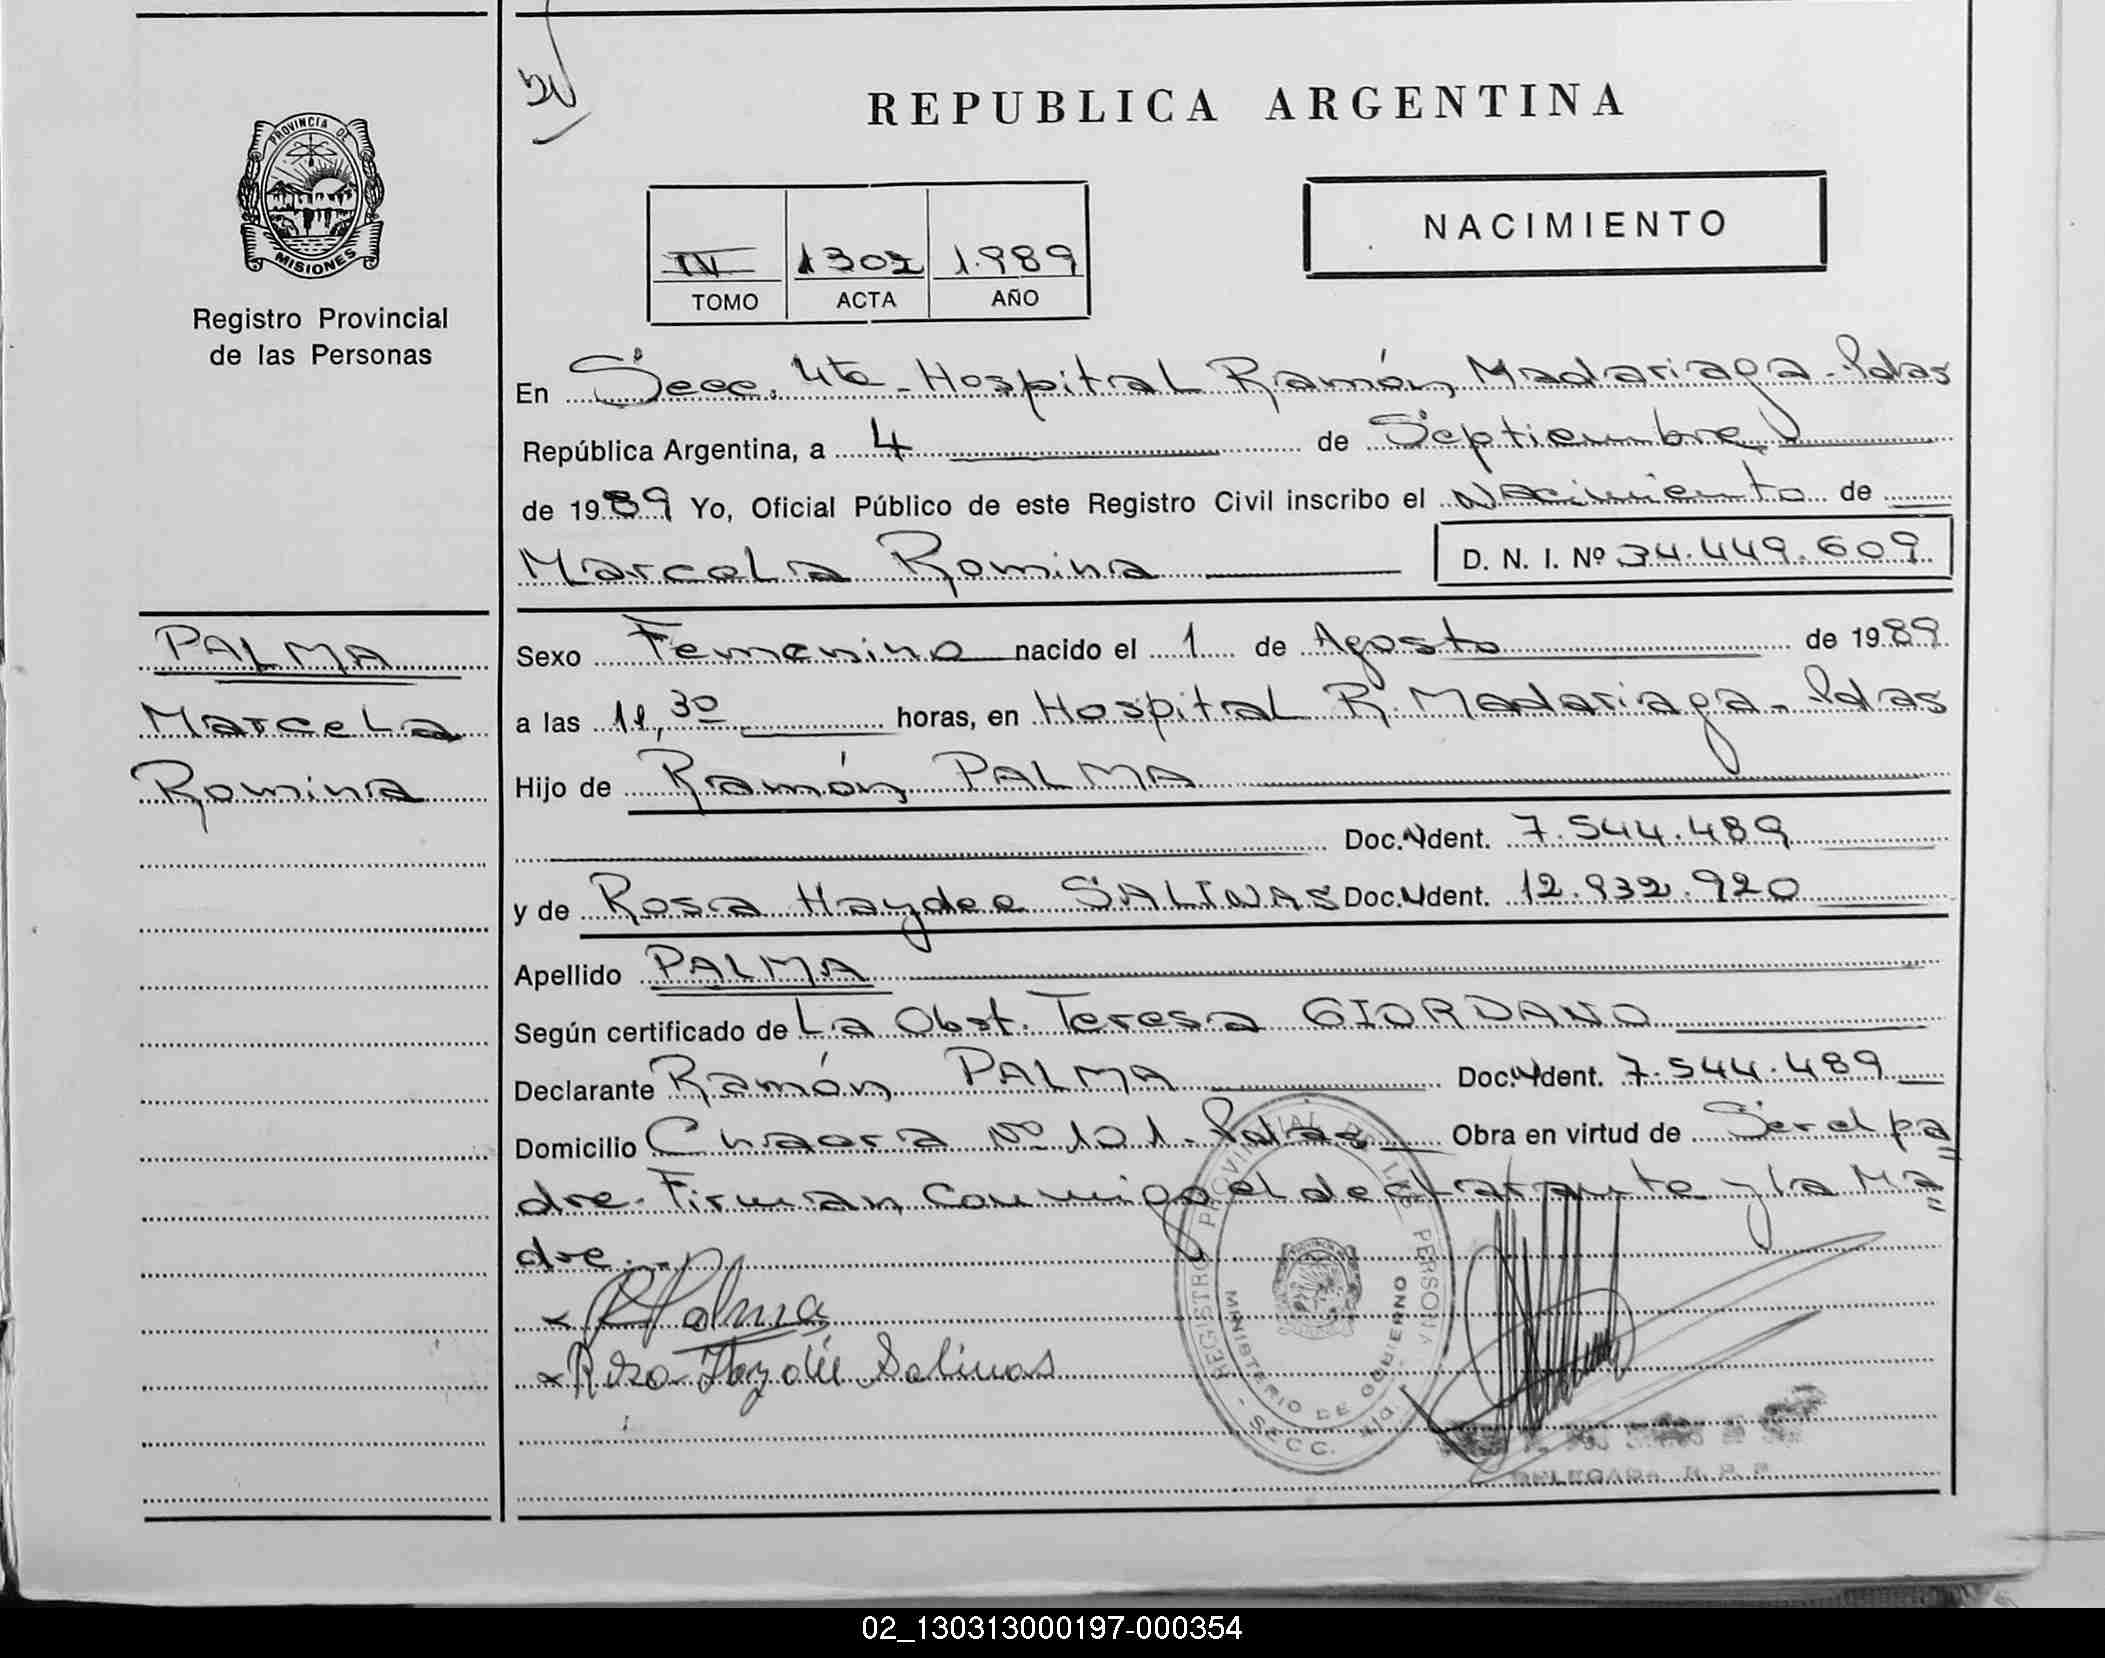 PROVINCIA DE
MISIONES
Registro Provincial
de las Personas
PALMA
Marcela
Romina
REPUBLICA ARGENTINA
NACIMIENTO
IV 1302 1.989
TOMO ACTA AÑO
En Secc. 4ta - Hospital Ramón Madariaga - Pdas
República Argentina, a 4 de Septiembre
de 1989 Yo, Oficial Público de este Registro Civil inscribo el Nacimiento de
Marcela Romina D. N. I. Nº 34.449.609
Sexo Femenino nacido el 1 de Agosto de 1989
a las 11,30 horas, en Hospital R. Madariaga - Pdas
Hijo de Ramón PALMA
Doc. Ident. 7.544.489
y de Rosa Haydee SALINAS Doc. Ident. 12.932.920
Apellido PALMA
Según certificado de La Obst. Teresa GIORDANO
Declarante Ramón PALMA Doc. Ident. 7.544.489
Domicilio Chacra Nº 101 - Pdas Obra en virtud de Ser el pa
dre - Firman conmigo el declarante y la Ma
dre.-
x R Palma
x Rosa Haydée Salinas
REGISTRO PROVINCIAL DE LAS PERSONAS
MINISTERIO DE GOBIERNO
SECC.
DELEGADA R. P. P.
02_130313000197-000354